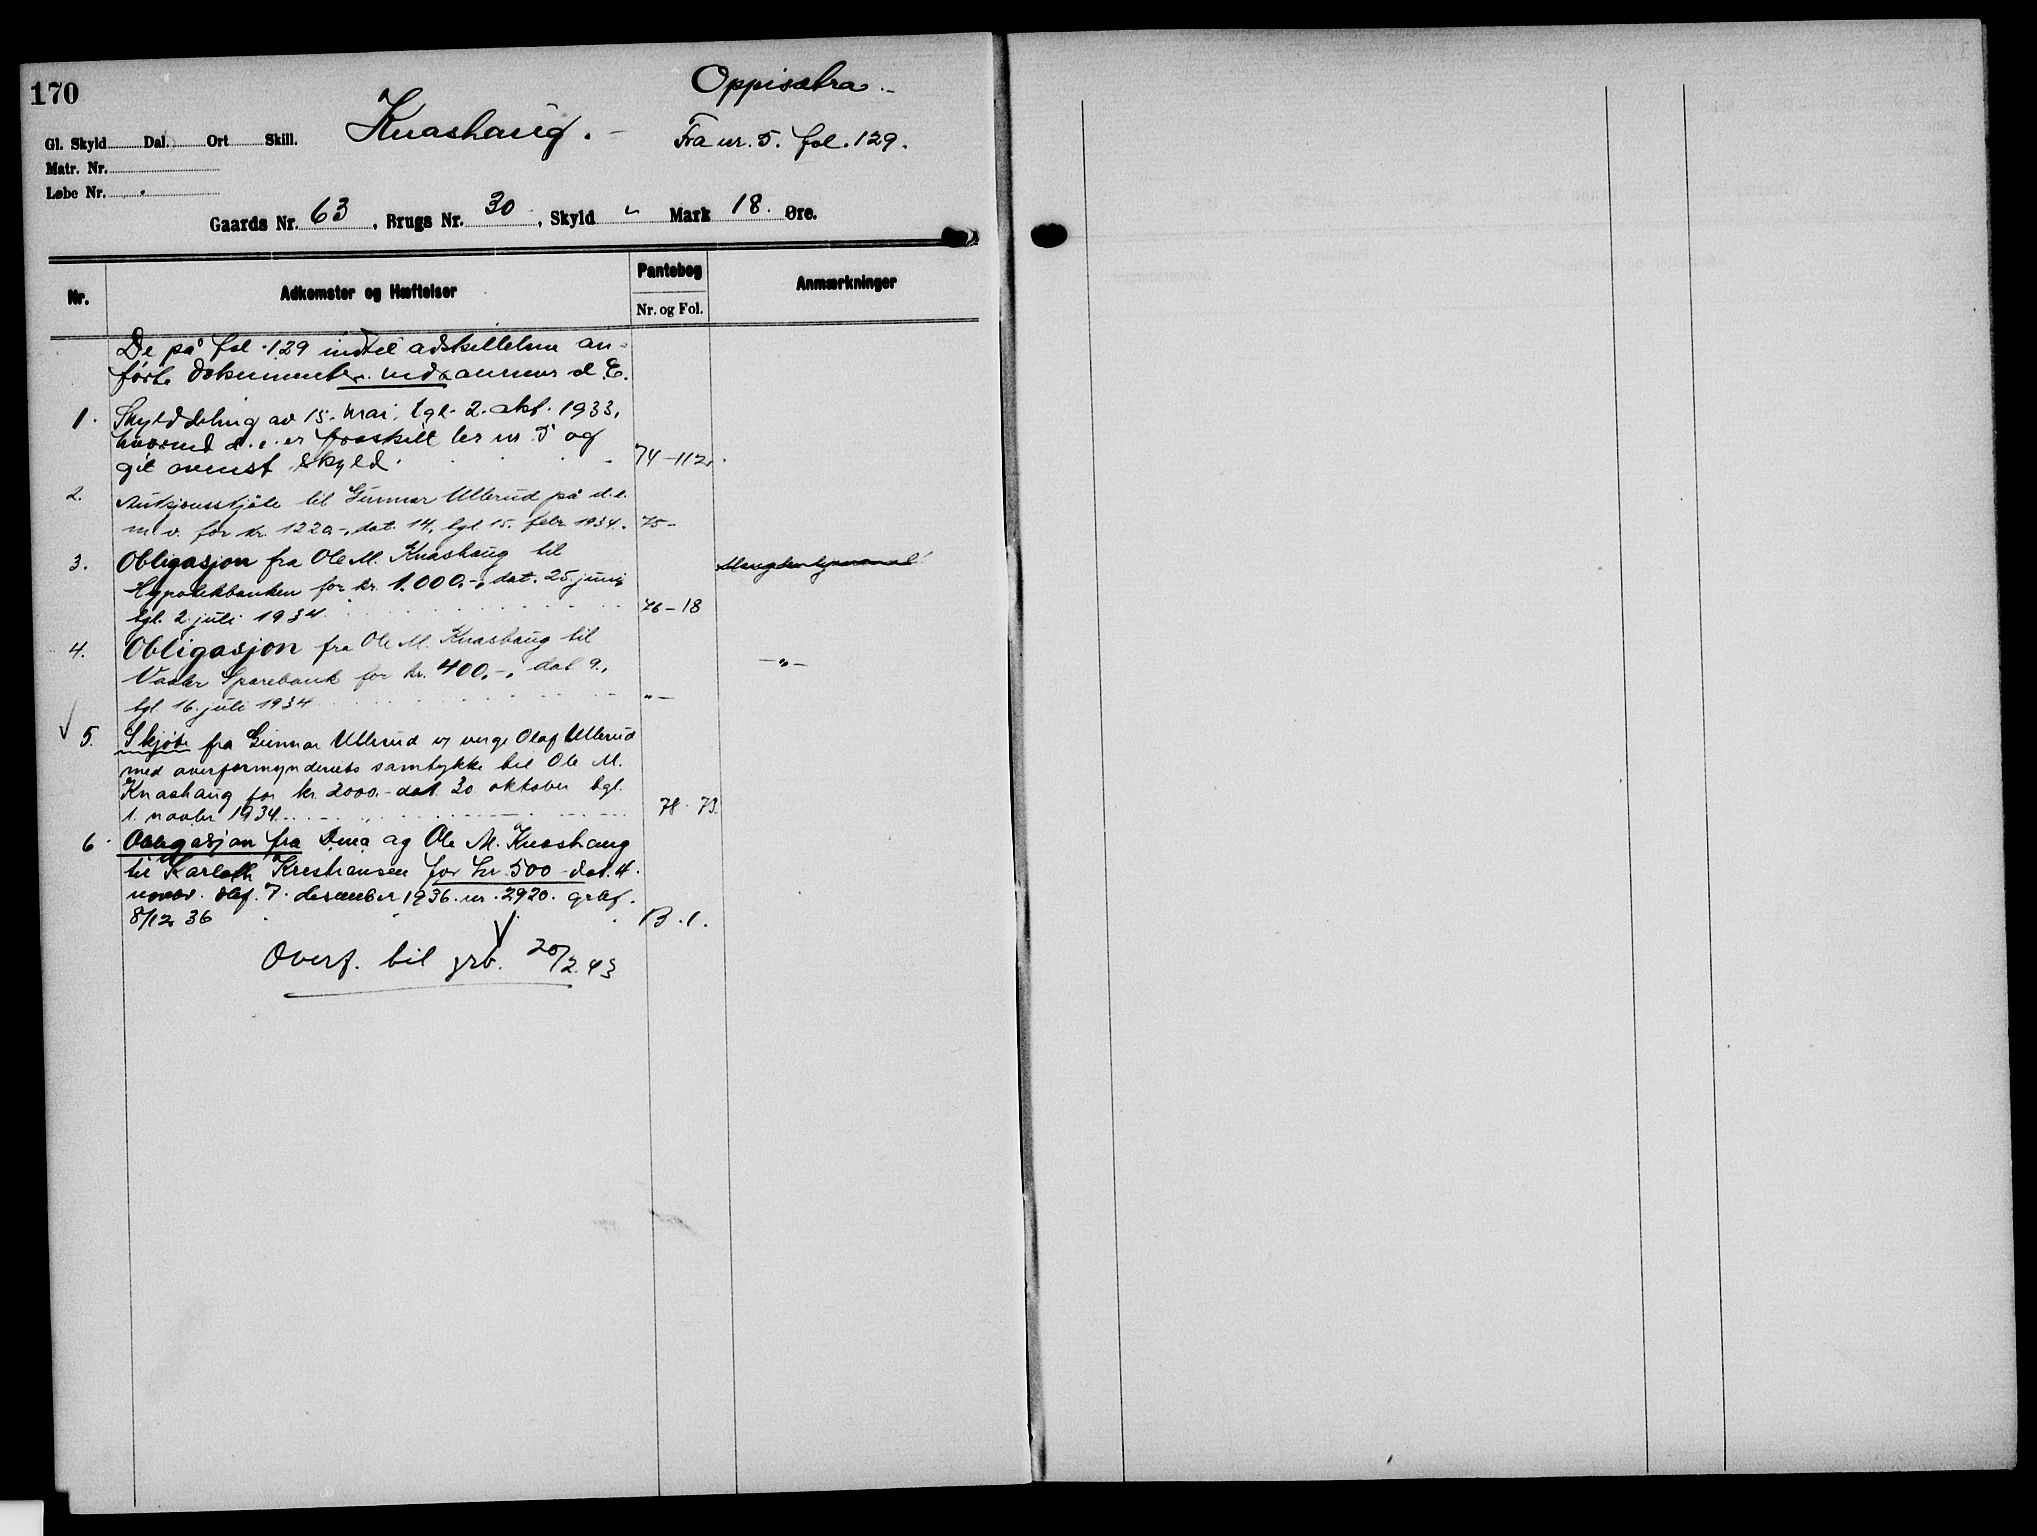 170
Oppisætra.-
Knashaug. -
Fra nr. 5. fol. 129.
Gl. Skyld Dal. Ort Skill.
Matr. Nr.
Løbe Nr. "
Gaards Nr. 63, Brugs Nr. 30, Skyld " Mark 18. Øre.
Nr. Adkomster og Hæftelser Pantebog Anmærkninger
Nr. og Fol.
De på fol. 129 indtil adskillelsen an-
førte dokumenter. d. E.
1. Skylddeling av 15. mai, tgl. 2. okt. 1933,
hvorved d. e. er fraskilt br nr 5 og
git ovennst skyld. 74-112.
2. Auksjonsskjøte til Gunnar Ullerud på d.e.
m.v. for kr. 1220-, dat. 14., tgl. 15. febr 1934. 75-
3. Obligasjon fra Ole M. Knashaug til
Hypotekbanken for kr. 1.000.-, dat. 25. juni,
tgl. 2. juli 1934. 76-18
4. Obligasjon fra Ole M. Knashaug til
Vaaler Sparebank for kr. 400.-, dat 9., -"-
tgl. 16. juli 1934 "-
5. Skjøte fra Gunnar Ullerud v/ verge Olaf Ullerud
med overformynderiets samtykke til Ole M.
Knashaug for kr. 2000.- dat. 30 oktober tgl.
1. novbr 1934. 78-73.
6. Obligasjon fra Dina og Ole M. Knashaug
til Karloth Kristiansen for kr. 500 - dat. 4.
novbr. dbf. 7. desember 1936. nr. 2920. grbf.
8/12 36 B.1.
Overf. til grb. 20/2. 43